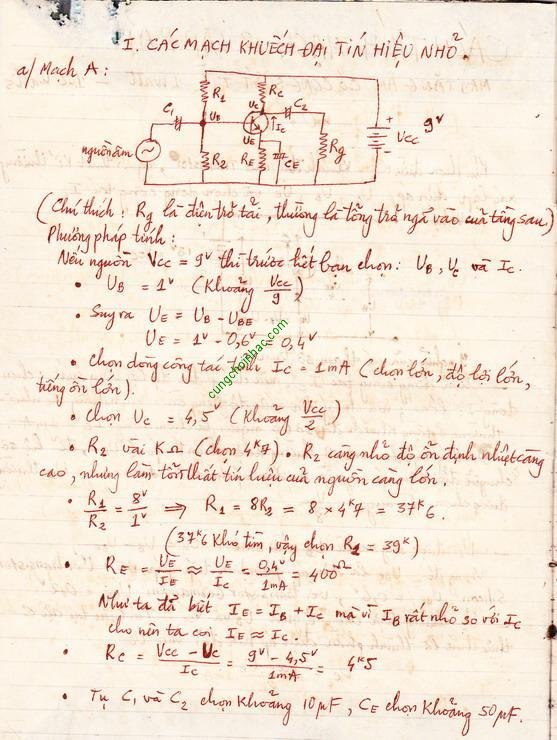 I. CÁC MẠCH KHUẾCH ĐẠI TÍN HIỆU NHỎ.
a/ Mạch A:
C1 R1 UB R2 nguồn âm
RC UC C2 IC UE RE CE Rg
+ - VCC 9V
(Chú thích: Rg là điện trở tải, thường là tổng trở ngả vào của tầng sau)
Phương pháp tính:
Nếu nguồn VCC = 9V thì trước hết bạn chọn: UB, UC và IC.
• UB = 1V (Khoảng VCC/9)
• Suy ra UE = UB - UBE
UE = 1V - 0,6V = 0,4V
• Chọn dòng công tác tĩnh IC = 1mA (chọn lớn, độ lợi lớn,
tiếng ồn lớn).
• Chọn UC = 4,5V (Khoảng VCC/2)
• R2 vài KΩ (chọn 4K7). R2 càng nhỏ độ ổn định nhiệt càng
cao, nhưng làm tổn thất tín hiệu của nguồn càng lớn.
• R1/R2 = 8V/1V ⇒ R1 = 8R2 = 8 × 4K7 = 37K6.
(37K6 khó tìm, vậy chọn R1 = 39K)
• RE = UE/IE ≈ UE/IC = 0,4V/1mA = 400Ω
Như ta đã biết IE = IB + IC mà vì IB rất nhỏ so với IC
cho nên ta coi IE ≈ IC.
• RC = VCC - UC/IC = 9V - 4,5V/1mA = 4K5
• Tụ C1 và C2 chọn khoảng 10µF, CE chọn khoảng 50µF.
cungchoinhac.com